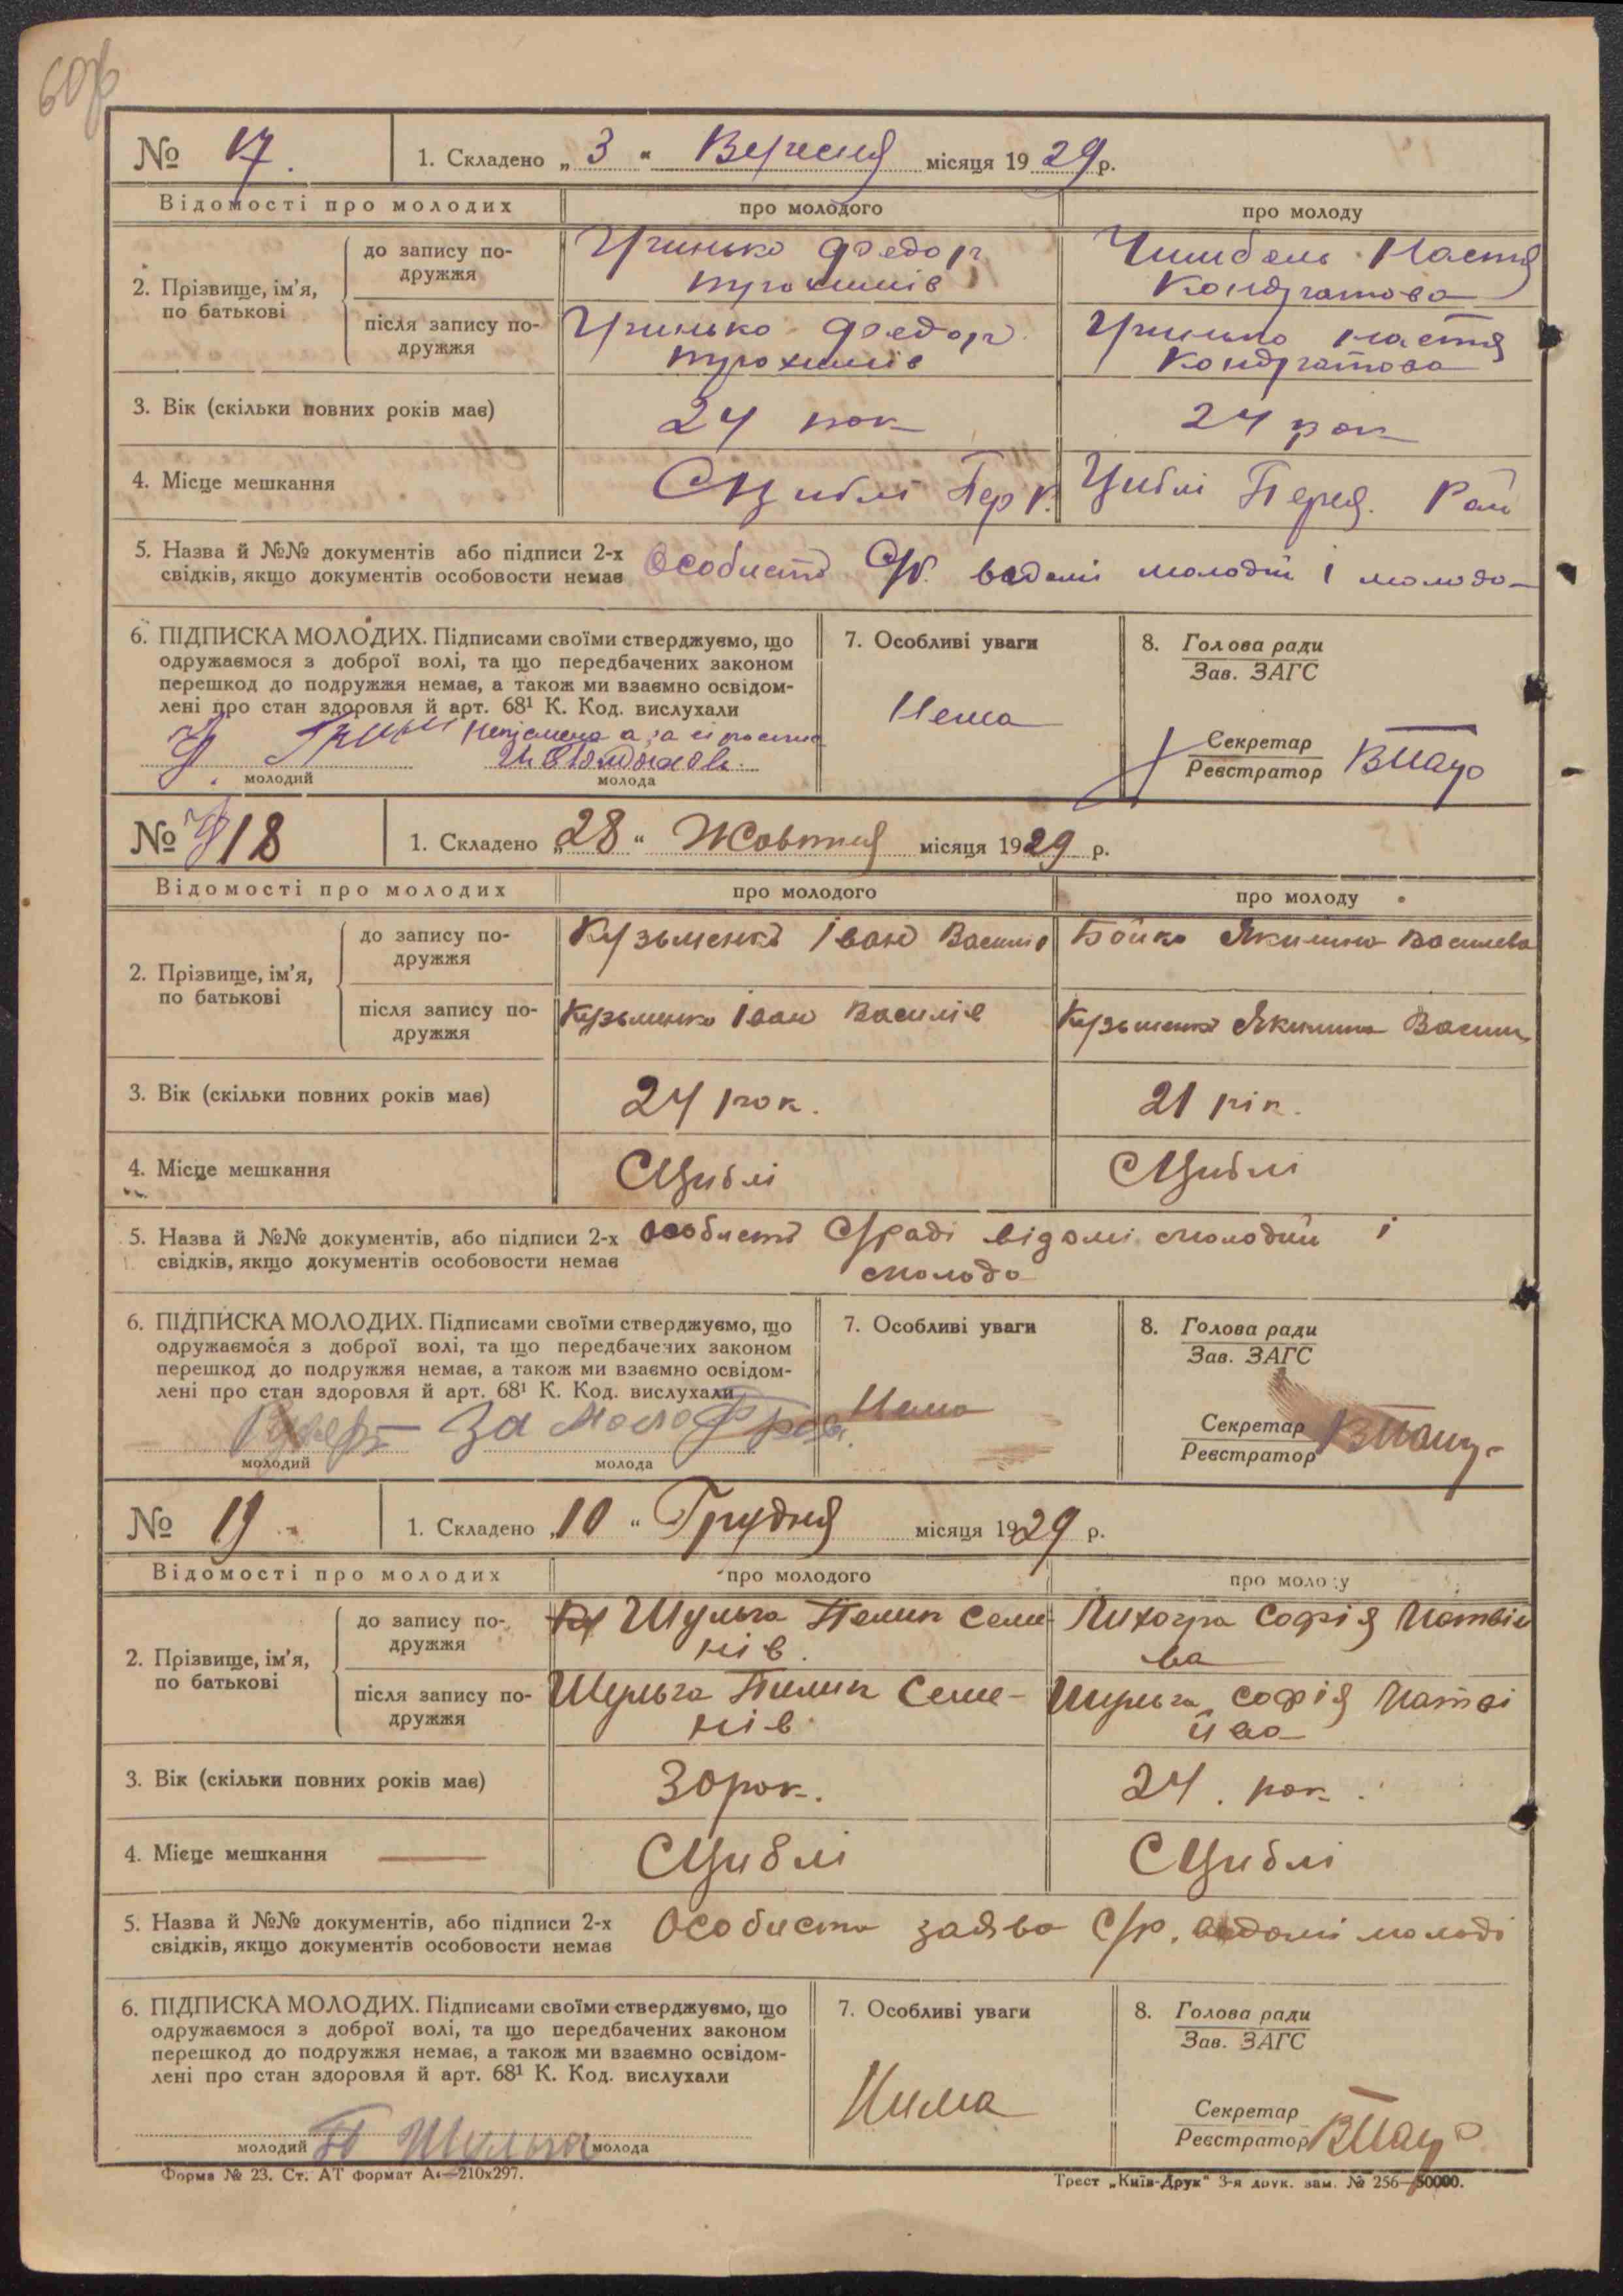 № 17. 1. Складено „3“ Вересня місяця 1929 р.
Відомості про молодих про молодого про молоду
2. Прізвище, ім’я, по батькові
до запису подружжя
Гринько Федор Трохимів
Настя Кондратова
після запису подружжя
Гринько Федор Трохимів
Гринько Настя Кондратова
3. Вік (скільки повних років має) 24 рок 24 рок
4. Місце мешкання С Циблі Пер Р. Циблі Перея. Рай
5. Назва й №№ документів або підписи 2-х
свідків, якщо документів особовости немає
Особисто С/р. ведомі молодий і молода
6. ПІДПИСКА МОЛОДИХ. Підписами своїми стверджуємо, що
одружаємося з доброї волі, та що передбачених законом
перешкод до подружжя немає, а також ми взаємно освідом-
лені про стан здоров­ля й арт. 68¹ К. Код. вислухали
молодий молода
7. Особливі уваги
Нема
8. Голова ради
Зав. ЗАГС
Секретар
Реєстратор
№ 18 1. Складено „28“ Жовтня місяця 1929 р.
Відомості про молодих про молодого про молоду
2. Прізвище, ім’я, по батькові
до запису подружжя
Кузьменко Іван Василів
Бойко Якилина Василева
після запису подружжя
Кузьменко Іван Василів
Кузьменко Якилина Васили
3. Вік (скільки повних років має) 24 рок. 21 рік.
4. Місце мешкання С Циблі С Циблі
5. Назва й №№ документів, або підписи 2-х
свідків, якщо документів особовости немає
особисто С/раді відомі молодий і
молода
6. ПІДПИСКА МОЛОДИХ. Підписами своїми стверджуємо, що
одружаємося з доброї волі, та що передбачених законом
перешкод до подружжя немає, а також ми взаємно освідом-
лені про стан здоровля й арт. 68¹ К. Код. вислухали
За
молодий молода
7. Особливі уваги
Нема
8. Голова ради
Зав. ЗАГС
Секретар
Реєстратор
№ 19 1. Складено „10“ Грудня місяця 1929 р.
Відомості про молодих про молодого про молоду
2. Прізвище, ім’я, по батькові
до запису подружжя
Шульга Пилип Семе-
нів.
Лихогра Софія Матвіє
ва
після запису подружжя
Шульга Пилип Семе-
нів
Шульга Софія Матві
йва
3. Вік (скільки повних років має) 30 рок. 24. рок.
4. Місце мешкання С Циблі С Циблі
5. Назва й №№ документів, або підписи 2-х
свідків, якщо документів особовости немає
Особиста заява С/р. ведомі молоді
6. ПІДПИСКА МОЛОДИХ. Підписами своїми стверджуємо, що
одружаємося з доброї волі, та що передбачених законом
перешкод до подружжя немає, а також ми взаємно освідом-
лені про стан здоровля й арт. 68¹ К. Код. вислухали
молодий П Шульга молода
7. Особливі уваги
Нима
8. Голова ради
Зав. ЗАГС
Секретар
Реєстратор
Форма № 23. Ст. АТ формат А₄—210х297.
Трест „Київ-Друк“ 3-я друк. зам. № 256—50000.